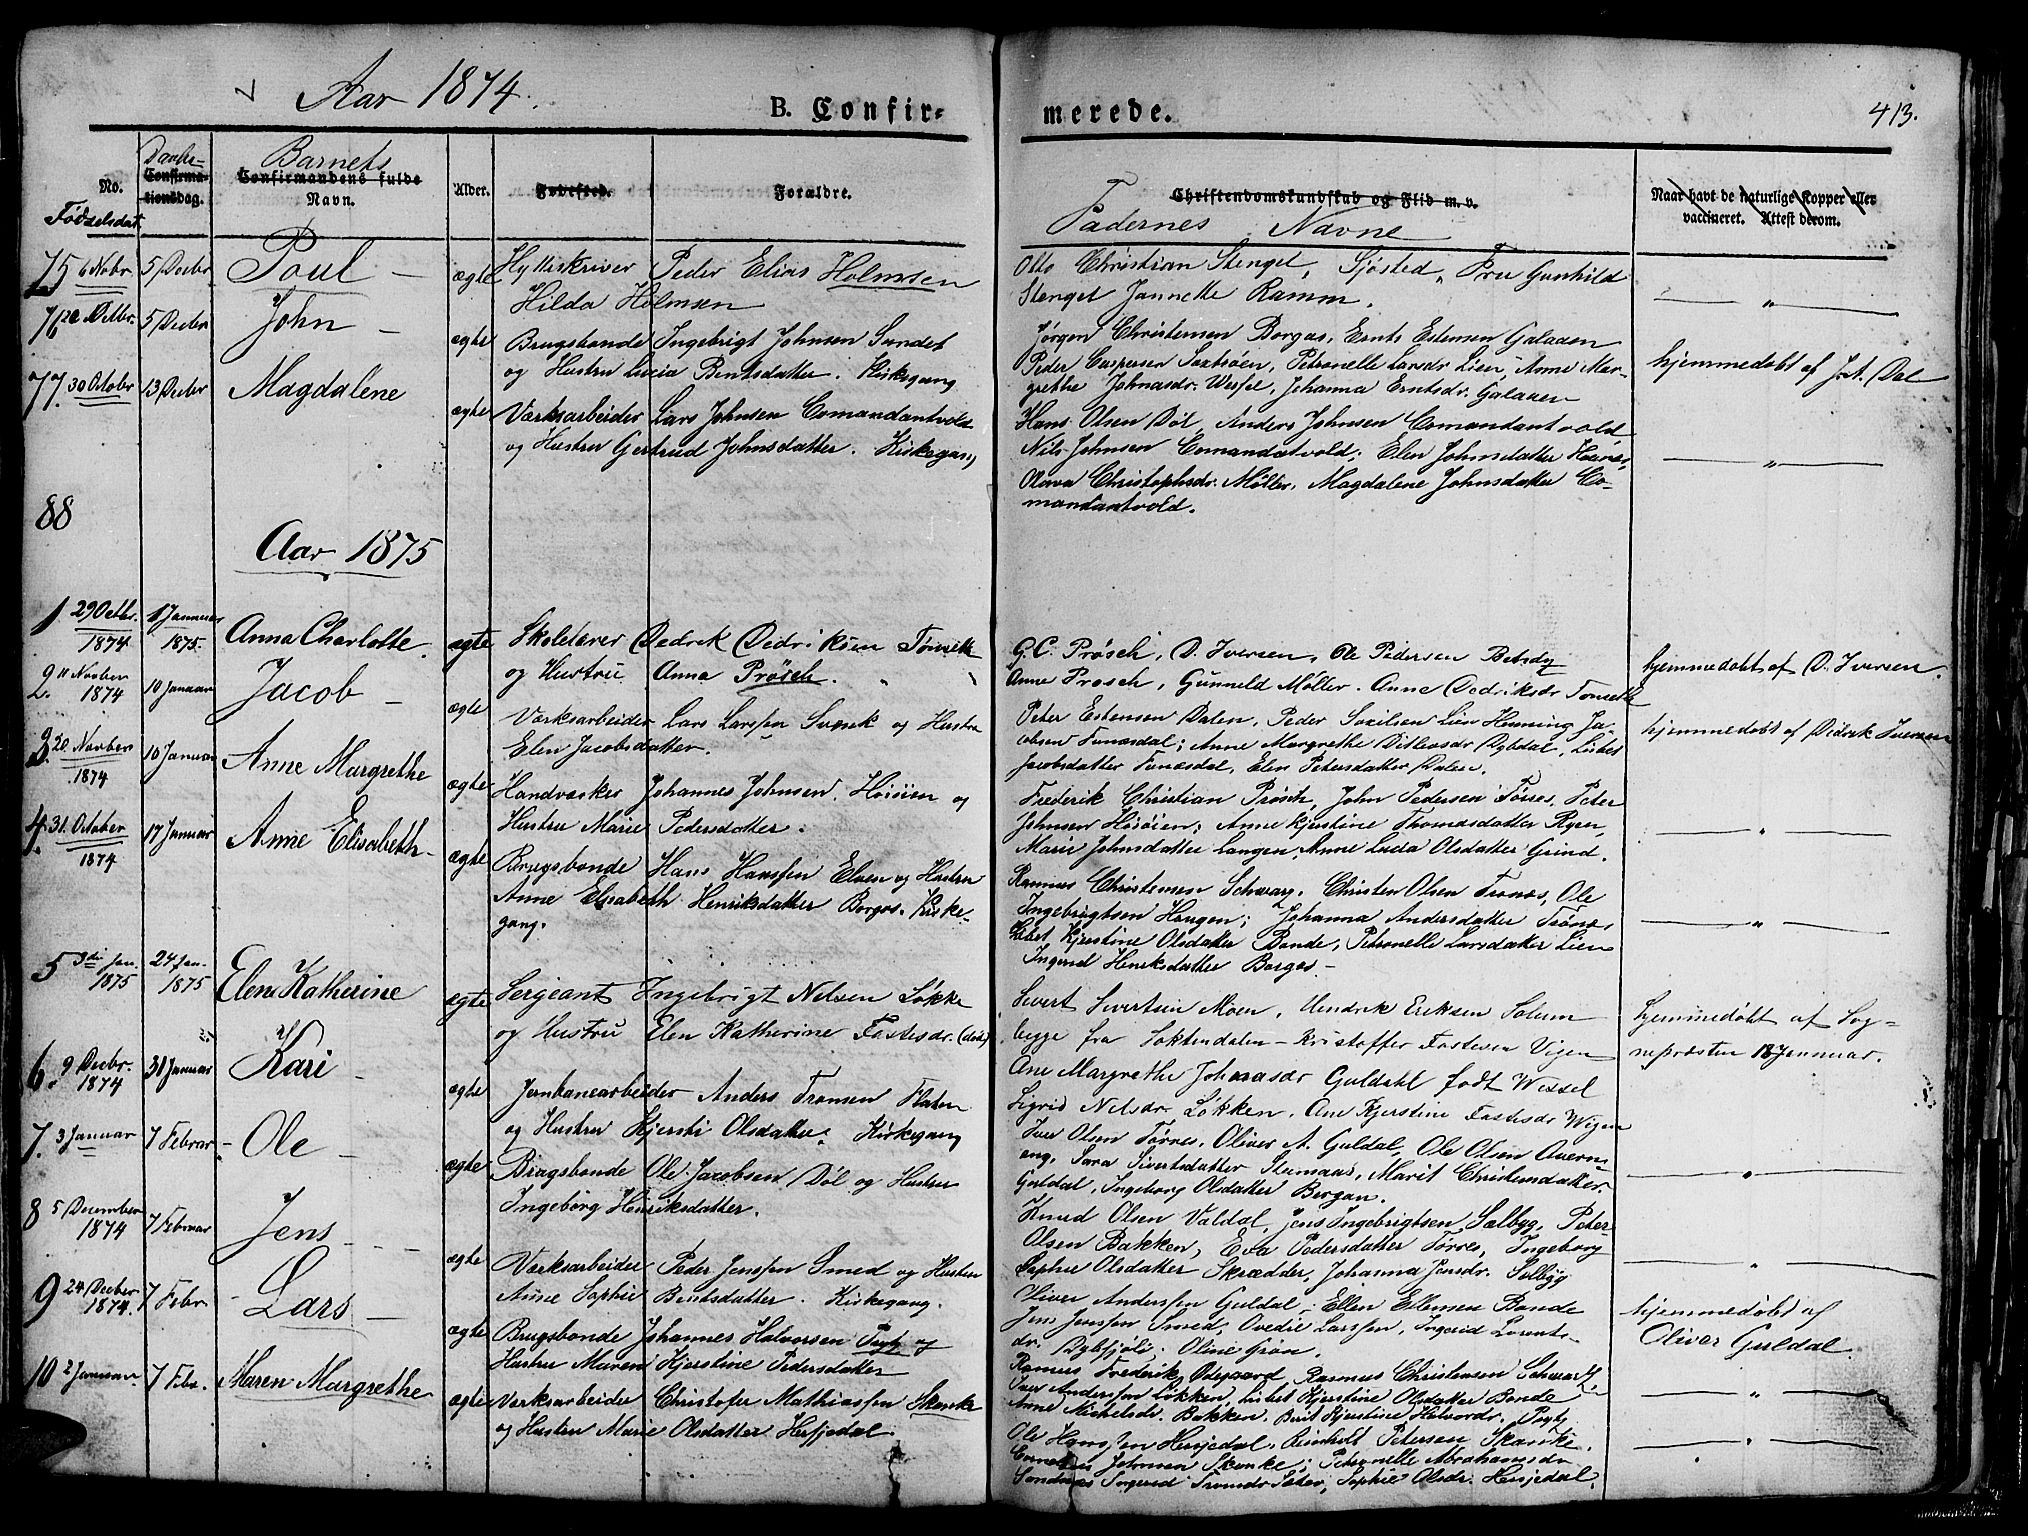 Aar 1874.
B. Confir-
merede.
413.
No.
Fødselsdat
Daabs-
Confirma-
tionsdag.
Barnets
Confirmandens fulde
Navn.
Alder.
Fødested.
Forældre.
Christendomskundskab og Flid m.v.
Fadernes Navne
Naar havt de naturlige Kopper eller
vaccineret. Attest derom.
75 6 Novbr 5 Decbr Poul – ægte Hytteskriver Peder Elias Holmsen
Hilda Holmsen
Otto Christian Stengel, Sjøsted, Fru Gunhild
Stengel Jannette Ramm.
76 Octbr. 5 Decbr John – ægte Brugsbonde Ingebrigt Johnsen Sundet
og Hustru Lucia Bentsdatter. Kirkegang
Jørgen Christensen Borgos, Ernts Estensen Galaaen
Peder Caspersen Saxtroen, Petronelle Larsdr Lien, Anne Mar-
grethe Johnasdr. Wessel, Johanna Erntsdr. Galaaen
hjemmedøbt af J. A. Dal
77. 30 October 13 Decbr Magdalene ægte Værksarbeider Lars Johnsen Comandantvold
og Hustru Gertrud Johnsdatter. Kirkegang
Hans Olsen Døl, Anders Johnsen Comandantvold
Nils Johnsen Comandatvold; Elen Johnsdatter
Olava Christophsdr. Møller, Magdalene Johnsdatter Co-
mandantvold.
88
Aar 1875
1 29 Octbr. 1874 1 Januar 1875. Anna Charlotte. ægte Skolelærer Dedrek Dedriksen Tønseth
og Hustru Anna Prösch.
G. C. Prösch, D. Iversen, Ole Pedersen Betsdy
Anne Prösch, Gunneld Møller. Anne Dedriksdr Tønseth
hjemmedøbt af D. Iversen.
2. 11 Novber 1874 10 Januar Jacob – ægte Værksarbeider Lars Larssen Svensk og Hustru
Elen Jacobsdatter.
Peter Estensen Dalen, Peder Lien Henning Ja-
cobsen Funesdal; Anne Margrethe Ditlevsdr Dybdal, Lisbet
Jacobsdatter Funæsdal, Elen Petersdatter Dalen.
hjemmedøbt af Didrik Iversen
3. 20. Novber 1874 10 Januar Anne Margrethe ægte Handværker Johannes Johnsen Høsöien og
Hustru Marie Pedersdatter.
Frederik Christian Prösch, John Pedersen Törres, Peter
Johnsen Høsöien; Anne Kjerstine Thomasdatter Ryen,
Marie Johnsdatter Langen, Anne Lucia Olsdatter Grind.
4. 31. October 1874 17 Januar Anne Elisabeth – ægte Brugsbonde Hans Hanssen Elven og Hustru
Anne Elisabeth Henriksdatter Borgos. Kirke-
gang.
Rasmus Christensen Schwarz, Christen Olsen Trønes, Ole
Ingebrigtsen Haugen; Johanna Andersdatter Trønæs,
Lisbet Kjerstine Olsdatter Bonde, Petronelle Larsdatter Lien
Ingerid Henriksdatter Borgos –
5 3die Jan. 1875 24 Jan. 1875 Elen Katherine ægte Sergeant Ingebrigt Nelsen Løkke
og Hustru Elen Katherine Fastesdr. (død)
Sivert Sivertsen Moen, Hendrik Eriksen Solem
begge fra Soktendalen – Kristoffer Fastesen Vigen
Ane Margrethe Johnasdr Guldahl født Wessel
Sigrid Nelsdr. Løkken. Ane Kjerstine Fastesdr Wigen
hjemmedøbt af Sog-
nepræsten 18 Januar.
6. 9 Decbr. 1874 31 Januar Kari ægte Jernbanearbeider Anders Tronsen Flaten
og Hustru Kjersti Olsdatter. Kirkegang
Iver Olsen Törres, Oliver A. Guldal, Ole Olsen Avern
eng, Sara Sivertsdatter Stamaas, Marit Christensdatter
Guldal, Ingeborg Olsdatter Bergan.
7. 3 Januar 7 Februar – Ole – ægte Brugsbonde Ole Jacobsen Döl og Hustru
Ingebörg Henriksdatter.
Knud Olsen Valdal, Jens Ingebrigtsen Solbyg, Peter
Olsen Bakken, Eva Pedersdatter Törres, Ingeborg
Sophie Olsdatter Skrædder, Johanna Jensdr. Solbyg
8 5 December 1874 7 Februar Jens ægte Værksarbeider Peder Jenssen Smed og Hustru
Anne Sophie Bentsdatter. Kirkegang.
Oliver Anderssen Guldal, Ellen Ellensen Bonde
Jens Jenssen Smed, Ovedie Larssen, Ingerid Lorents-
dr. Dybfjöld. Oline Grön.
hjemmedøbt af
Oliver Guldal
9 24 Decber 1874. 7 Febr. Lars – ægte Brugsbonde Johannes Halvorsen Pogty og
Hustru Maren Kjerstine Pedersdatter
Rasmus Frederik Odegaard, Rasmus Christensen Schwartz
Iver Anderssen Løkken, Lisbet Kjerstine Olsdatter Bonde
Anne Michelsdr. Bakken. Berit Kjerstine Halvordr. Pogty
10 2 Januar 7 Febr. Maren Margrethe ægte Værksarbeider Christofer Mathiassen Skanke
og Hustru Marie Olsdatter Hersjedal.
Ole Hanssen Hersjedal, Reinholt Petersen Skanke,
Cornelius Johnsen Skanke; Petronelle Abrahamsdr
Sandnes Ingerid Tronsdr Sæter, Sophie Olsdr. Hersjedal.